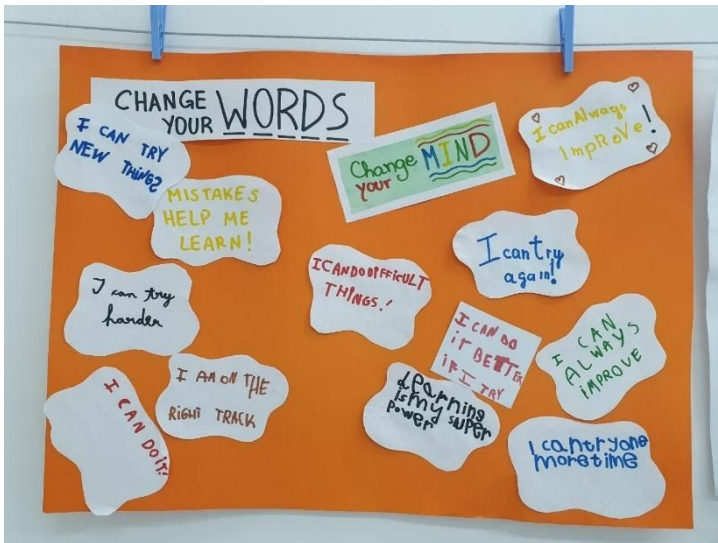 CHANGE
YOUR WORDS
Change
your MIND
I canAlways
ImpRoVe!
I CAN TRY
NEW THINGS
MISTAKES
HELP ME
LEARN!
I can try
again!
I CANDODIFFICULT
THINGS!
I can try
harder
I CAN DO
iT BETTER
iF I TRY
I CAN
ALWAYS
iMPROVE
I AM ON THE
RIGHT TRACK
Learning
is my super
power
I CAN DO iT!
I cantryone
moretime